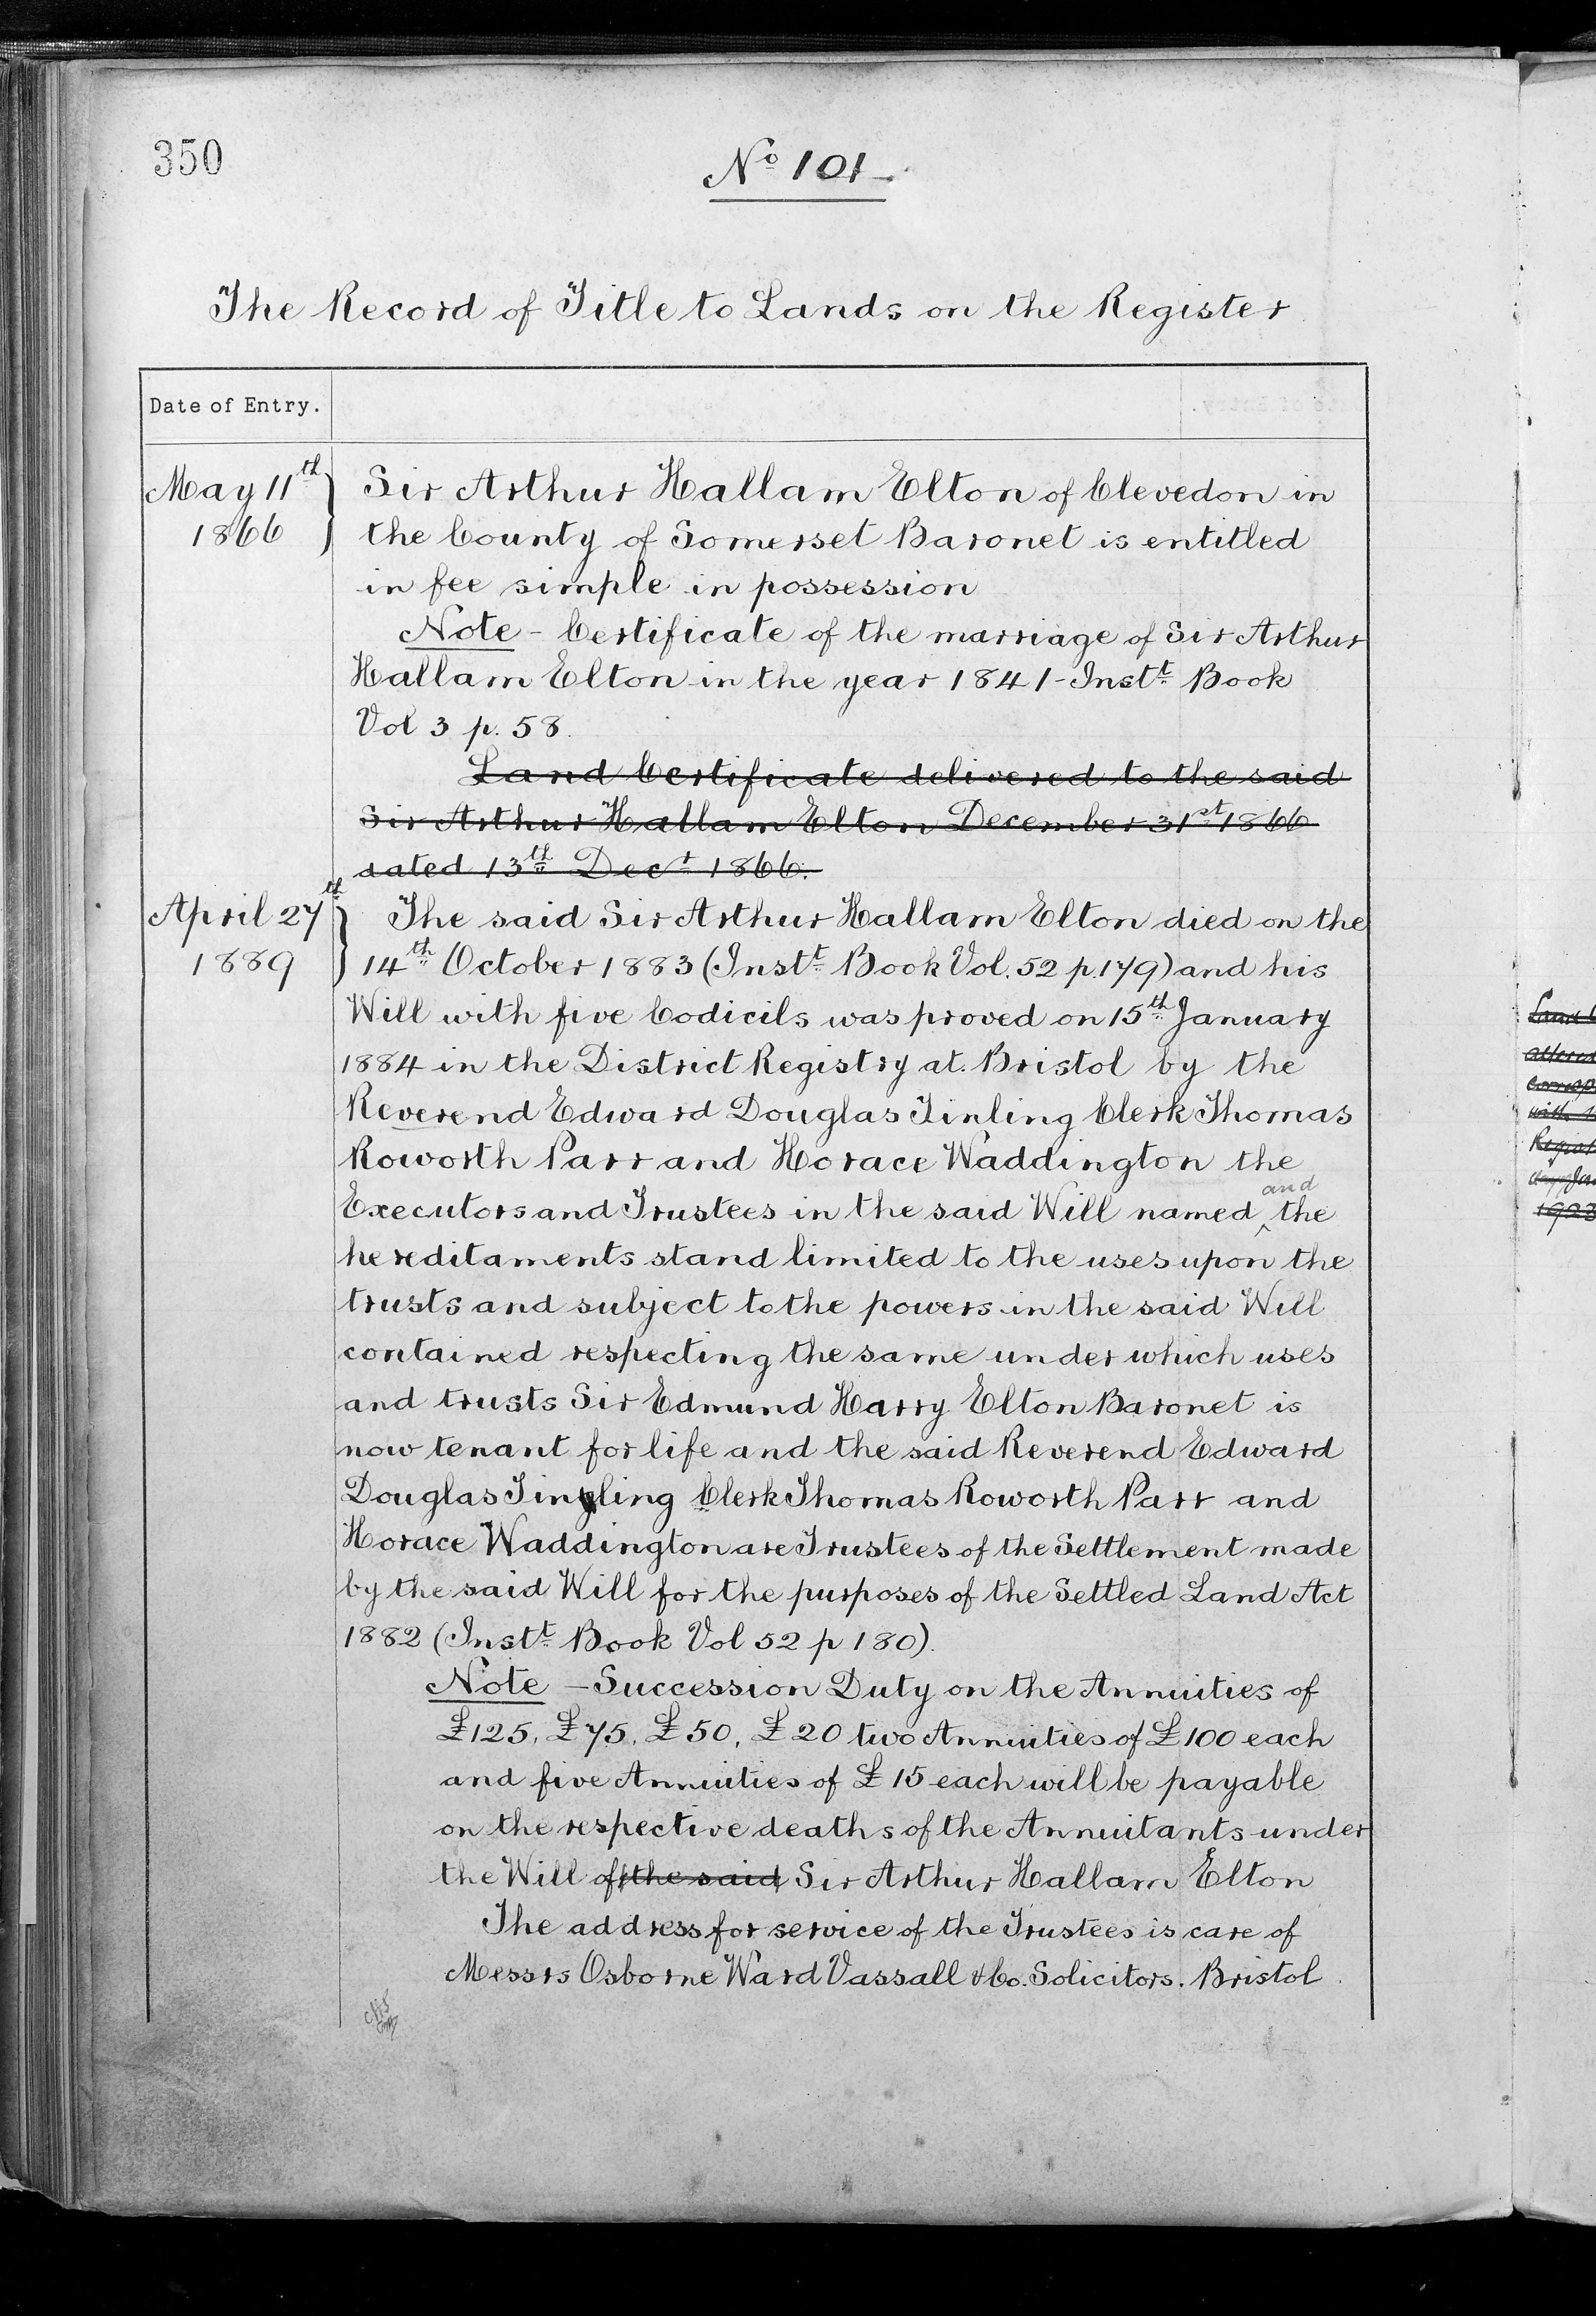 350
No 101
The Record of Title to Lands on the Register
Date of Entry.
May 11th 1866
Sir Arthur Hallam Elton of Clevedon in
the County of Somerset Baronet is entitled
in fee simple in possession
Note - Certificate of the marriage of Sir Arthur
Hallam Elton in the year 1841 - Instt Book
Vol 3 p. 58.
Land Certificate delivered to the said
Sir Arthur Hallam Elton December 31st 1866
dated 13th Decr 1866.
April 27th 1889
The said Sir Arthur Hallam Elton died on the
14th October 1883 (Instt Book Vol. 52 p. 179) and his
Will with five Codicils was proved on 15th January
1884 in the District Registry at Bristol by the
Reverend Edward Douglas Tinling Clerk Thomas
Roworth Parr and Horace Waddington the
Executors and Trustees in the said Will named and the
hereditaments stand limited to the uses upon the
trusts and subject to the powers in the said Will
contained respecting the same under which uses
and trusts Sir Edmund Harry Elton Baronet is
now tenant for life and the said Reverend Edward
Douglas Tinling Clerk Thomas Roworth Parr and
Horace Waddington are Trustees of the Settlement made
by the said Will for the purposes of the Settled Land Act
1882 (Instt Book Vol 52 p 180).
Note - Succession Duty on the Annuities of
£125, £75, £50, £20 two Annuities of £100 each
and five Annuities of £15 each will be payable
on the respective deaths of the Annuitants under
the Will of the said Sir Arthur Hallam Elton
The address for service of the Trustees is care of
Messrs Osborne Ward Vassall & Co. Solicitors. Bristol.
1923